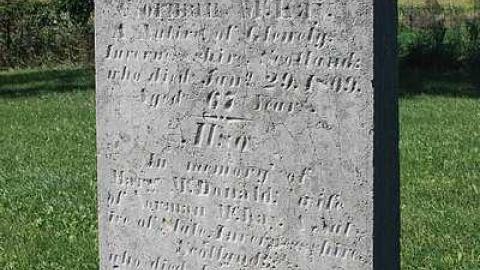 Norman McRay.
A Native of Glenely;
Inverness shire Scotland;
who died Jany. 29. 1869.
Aged 65 Years.
Also
In memory of
Mary McDonald; wife
of Norman McRay;
Inverness shire
Scotland;
who died